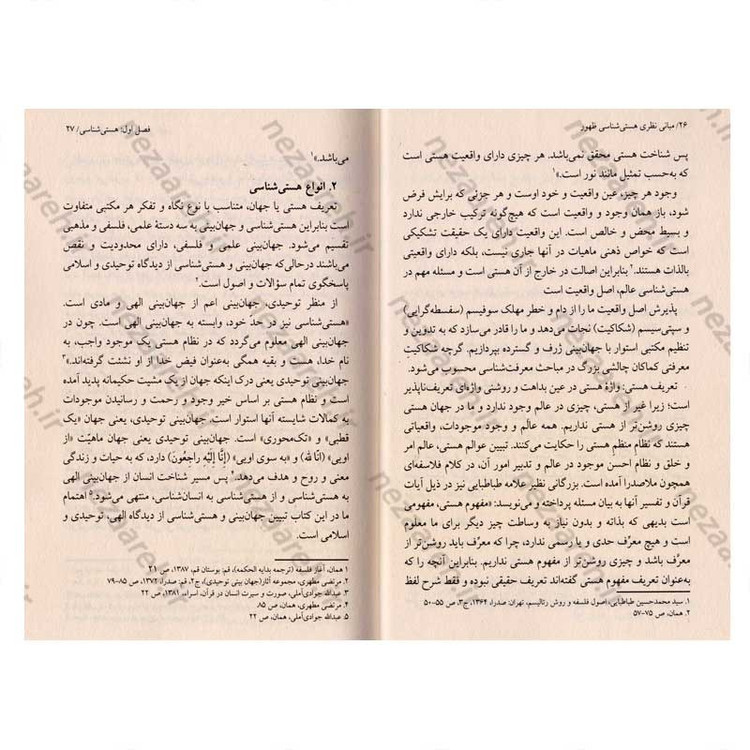 ۲۶/ مبانی نظری هستی‌شناسی ظهور
پس شناخت هستی محقق نمی‌باشد. هر چیزی دارای واقعیت هستی است
که به‌حسب تمثیل مانند نور است.»۱
وجود هر چیز، عین واقعیت و خود اوست و هر جزئی که برایش فرض
شود، باز همان وجود و واقعیت است که هیچ‌گونه ترکیب خارجی ندارد
و بسیط محض و خالص است. این واقعیت دارای یک حقیقت تشکیکی
است که خواص ذهنی ماهیات در آنها جاری نیست، بلکه دارای واقعیتی
بالذات هستند.۲ بنابراین اصالت در خارج از آن هستی است و مسئله مهم در
هستی‌شناسی عالم، اصل واقعیت است
پذیرش اصل واقعیت ما را از دام و خطر مهلک سوفیسم (سفسطه‌گرایی) و
سپتی‌سیسم (شکاکیت) نجات می‌دهد و ما را قادر می‌سازد که به تدوین و
تنظیم مکتبی استوار با جهان‌بینی ژرف و گسترده بپردازیم. گرچه شکاکیتِ
معرفتی کماکان چالشی بزرگ در مباحث معرفت‌شناسی محسوب می‌شود.
تعریف هستی: واژهٔ هستی در عین بداهت و روشنی واژه‌ای تعریف‌ناپذیر
است؛ زیرا غیر از هستی، چیزی در عالم وجود ندارد و ما در جهان هستی
چیزی روشن‌تر از هستی نداریم. همه عالَم وجود و موجودات، واقعیاتی
هستند که نظام منظم هستی را حکایت می‌کنند. تبیین عوالم هستی، عالم امر
و خلق و نظام احسن موجود در عالم و تدبیر امور آن، در کلام فلاسفه‌ای
همچون ملاصدرا آمده است. بزرگانی نظیر علامه طباطبایی نیز در ذیل آیات
قرآن و تفسیر آنها به بیان مسئله پرداخته و می‌نویسد: «مفهوم هستی، مفهومی
است بدیهی که بذاته و بدون نیاز به وساطت چیز دیگر برای ما معلوم
است و هیچ معرِّف حدی و یا رسمی ندارد، چرا که معرِّف باید روشن‌تر از
معرَّف باشد و چیزی روشن‌تر از مفهوم هستی نداریم. بنابراین آنچه را که
به‌عنوان تعریف مفهوم هستی گفته‌اند تعریف حقیقی نبوده و فقط شرح لفظ
۱. سید محمدحسین طباطبایی، اصول فلسفه و روش رئالیسم، تهران: صدرا، ۱۳۶۴، ج۳، ص ۵۵-۵۰
۲. همان، ص ۷۵-۵۷
فصل اول: هستی‌شناسی/ ۲۷
می‌باشد.»۱
۲. انواع هستی‌شناسی
تعریف هستی یا جهان، متناسب با نوع نگاه و تفکر هر مکتبی متفاوت
است بنابراین هستی‌شناسی و جهان‌بینی به سه دستهٔ علمی، فلسفی و مذهبی
تقسیم می‌شود. جهان‌بینی علمی و فلسفی، دارای محدودیت و نقص
می‌باشند درحالی‌که جهان‌بینی و هستی‌شناسی از دیدگاه توحیدی و اسلامی
پاسخگوی تمام سؤالات و اصول است.۲
از منظر توحیدی، جهان‌بینی اعم از جهان‌بینی الهی و مادی است.
«هستی‌شناسی نیز در حد خود، وابسته به جهان‌بینی الهی است. چون در
جهان‌بینی الهی معلوم می‌گردد که در نظام هستی یک موجود واجب، به
نام خدا، هست و بقیه همگی به‌عنوان فیض خدا از او نشئت گرفته‌اند.»۳
جهان‌بینی توحیدی یعنی درک اینکه جهان از یک مشیت حکیمانه پدید آمده
است و نظام هستی بر اساس خیر وجود و رحمت و رسانیدن موجودات
به کمالات شایسته آنها استوار است. جهان‌بینی توحیدی یعنی جهان «یک
قطبی» و «تک‌محوری» است. جهان‌بینی توحیدی یعنی جهان ماهیّت «از
اویی» (انّا للّه) و «به سوی اویی» (إنَّا إلَیْهِ راجِعُونَ) دارد، که به حیات و زندگی
معنی و روح و هدف می‌دهد.۴ پس مسیر شناخت انسان از جهان‌بینی
به هستی‌شناسی و از هستی‌شناسی به انسان‌شناسی، منتهی می‌شود.۵ اهتمام
ما در این کتاب تبیین جهان‌بینی و هستی‌شناسی از دیدگاه الهی، توحیدی و
اسلامی است.
۱ همان، آغاز فلسفه (ترجمه بدایه الحکمه)، قم: بوستان قم، ۱۳۸۷، ص ۲۱
۲. مرتضی مطهری، مجموعه آثار(جهان بینی توحیدی)، ج۲، قم: صدرا، ۱۳۷۲، ص ۸۵-۷۹
۳. عبدالله جوادی‌آملی، صورت و سیرت انسان در قرآن، اسراء، ۱۳۸۱، ص ۲۲
۴. مرتضی مطهری، همان، ص ۸۵
۵. عبدالله جوادی‌آملی، همان، ص ۲۲
nezaareh.ir